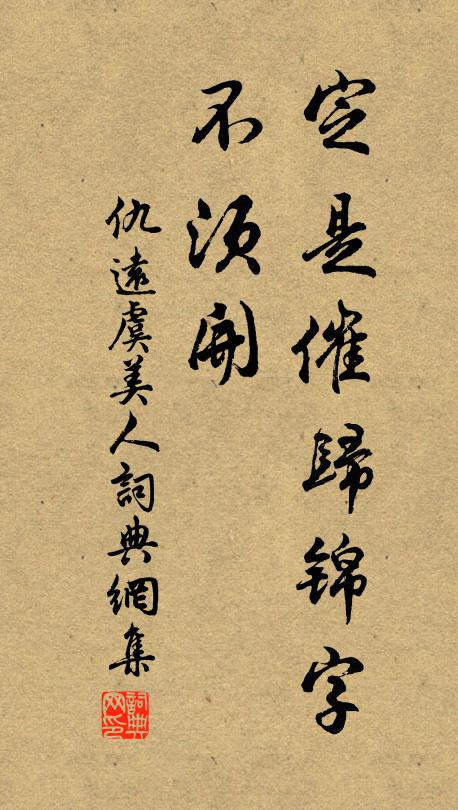 定是催歸錦字
不須開
仇遠虞美人詞典網集
詞典网印